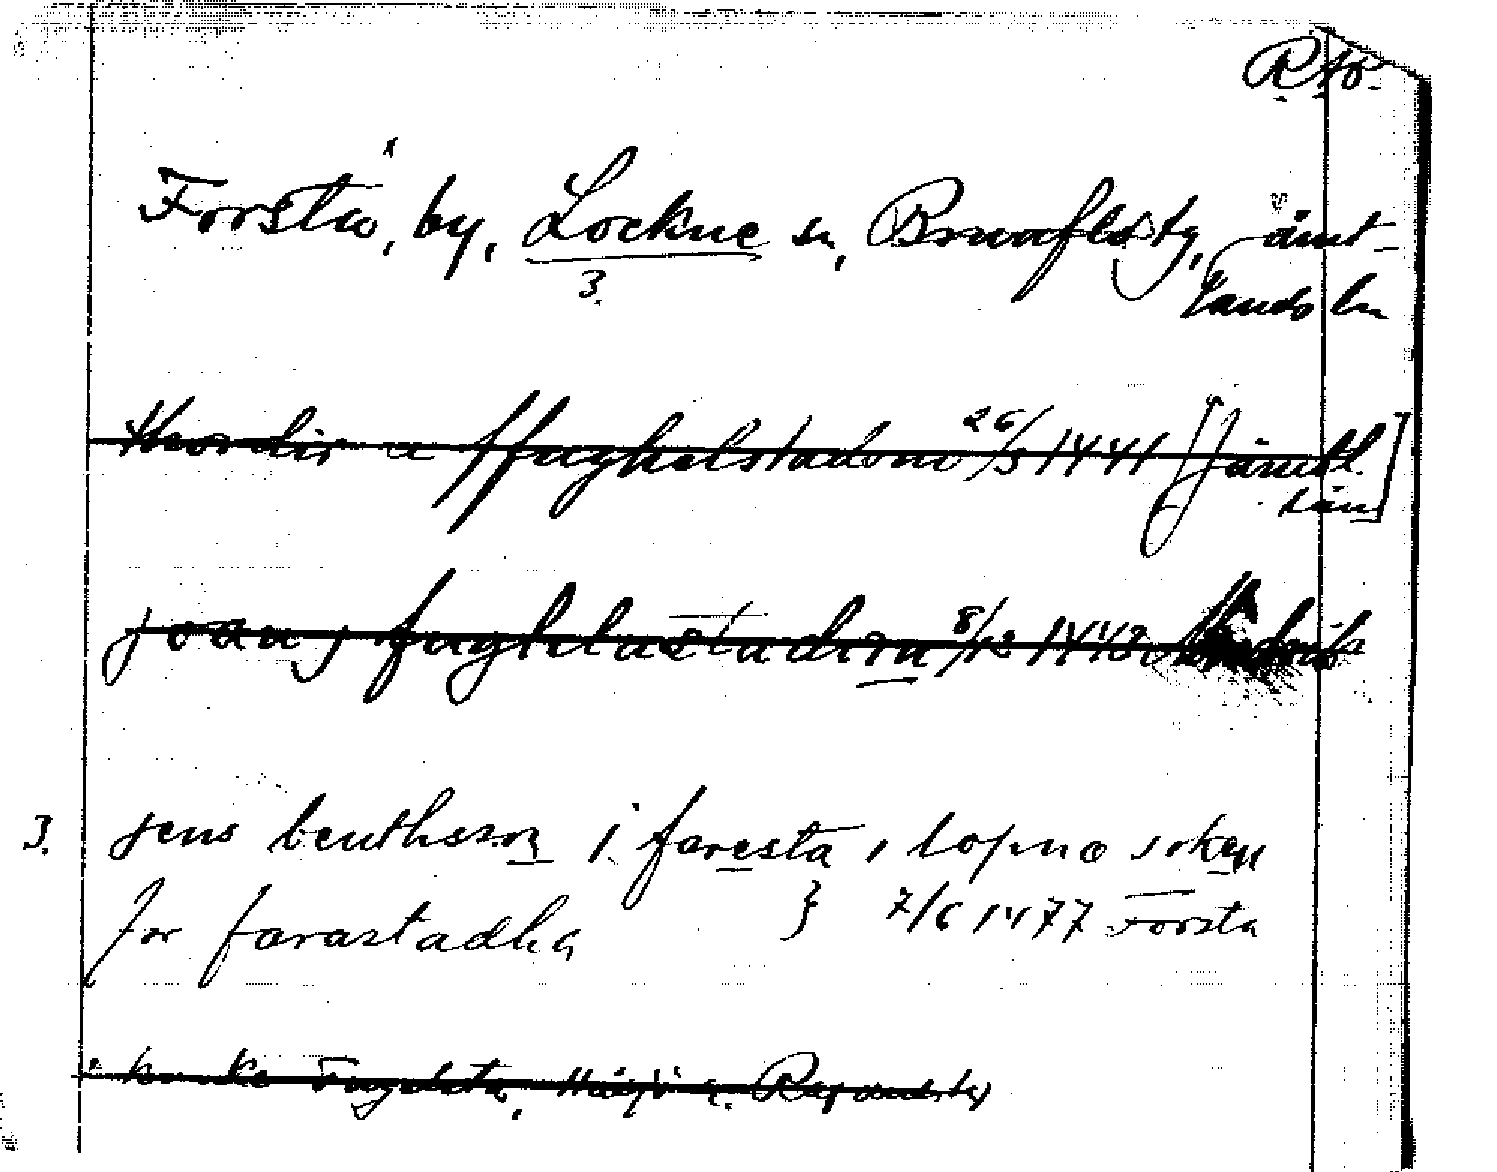 Rto.
Forsta, by, Lockne sn, Brunflo tg, Jämt-
3.
lands ln
Thordir a ffughelstadom 26/5 1441 [Jämtl.
län]
joan j fughlastadem 8/12 1442
3. jens benthsson i faresta i lopne soken
for farastadha } 7/6 1477 Forsta
Fugelsta, Ragunda tg